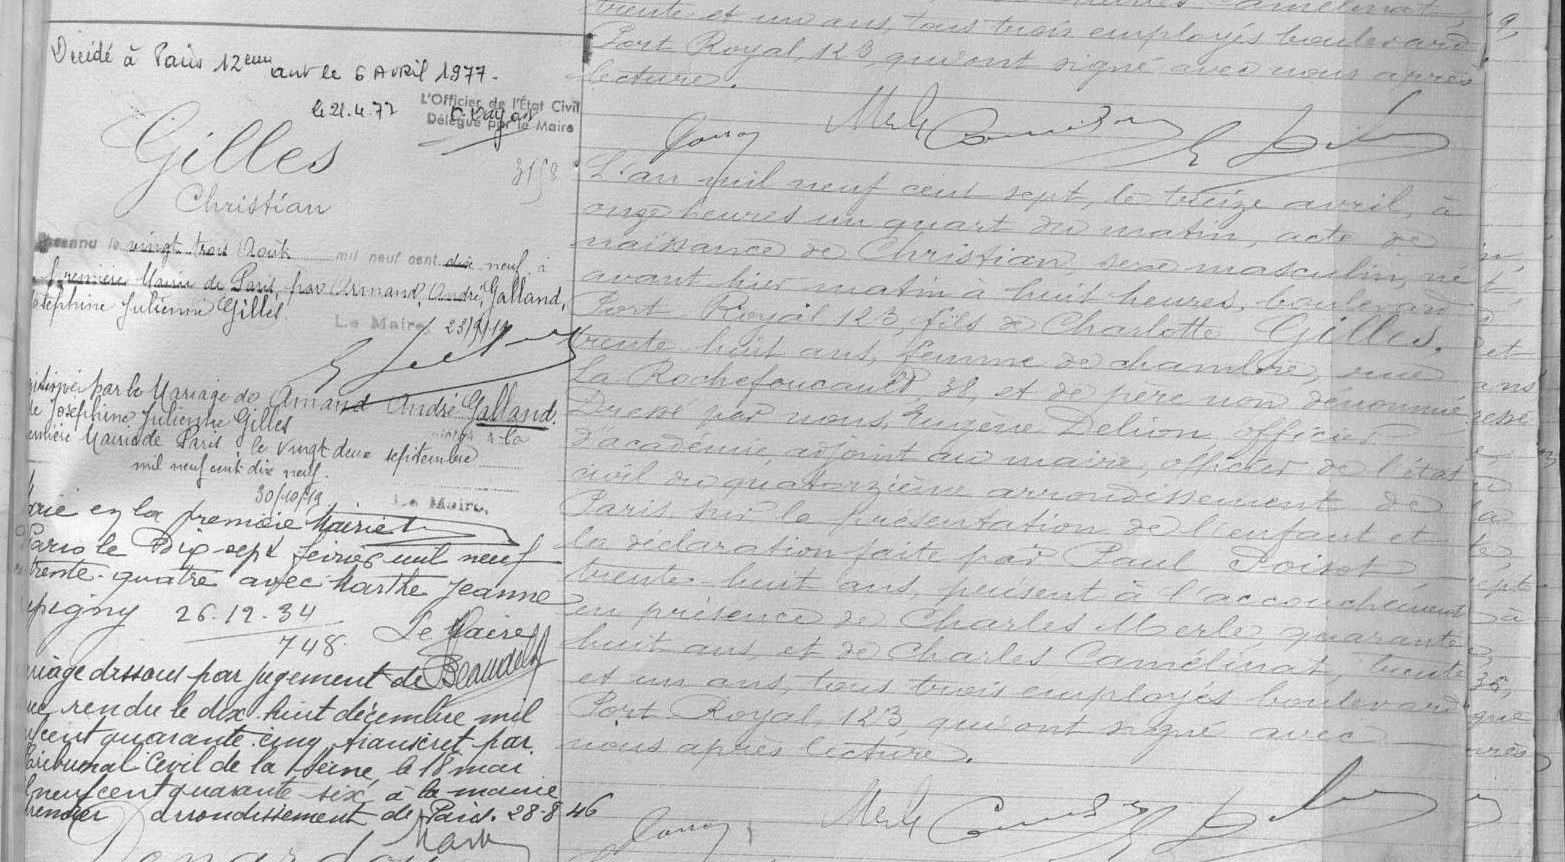 trente et un ans, tous trois employés boulevard
Port Royal, 123, qui ont signé avec nous après
lecture.
Décédé à Paris 12eme
le 6 Avril 1977.
le 21.4.77
L'Officier de l'État Civil
Délégué par le Maire
Gilles
Christian
vingt trois Août mil neuf cent dix neuf, à
première Mairie de Paris par Armand, André, Galland,
Joséphine Julienne Gilles.
Le Maire,
par le Mariage de Armand André Galland.
de Joséphine Julienne Gilles
à la
première Mairie de Paris, le vingt deux septembre
mil neuf cent dix neuf.
30/10/19
Le Maire,
Marié en la première Mairie
Paris le Dix-sept février mil neuf
trente-quatre avec Marthe Jeanne
26.12.34
748. Le Maire
mariage dissous par jugement de
rendu le dix-huit décembre mil
cent quarante-cinq transcrit par
Tribunal Civil de la Seine, le 18 mai
neuf cent quarante-six, à la mairie
arrondissement de Paris. 28-8-46
L'an mil neuf cent sept, le treize avril, à
onze heures un quart du matin, acte de
naissance de Christian, sexe masculin, né
avant hier matin à huit heures, boulevard
Port-Royal 123, fils de Charlotte Gilles,
trente huit ans, femme de chambre, rue
La Rochefoucauld, 38, et de père non dénommé
Dressé par nous, Eugène Delion officier
d'académie, adjoint au maire, officier de l'état
civil du quatorzième arrondissement de
Paris, sur la présentation de l'enfant et
la déclaration faite par Paul Poisot,
trente-huit ans, présent à l'accouchement
en présence de Charles Merle, quarante
huit ans, et de Charles Camélinat, trente
et un ans, tous trois employés boulevard
Port Royal, 123, qui ont signé avec
nous après lecture.